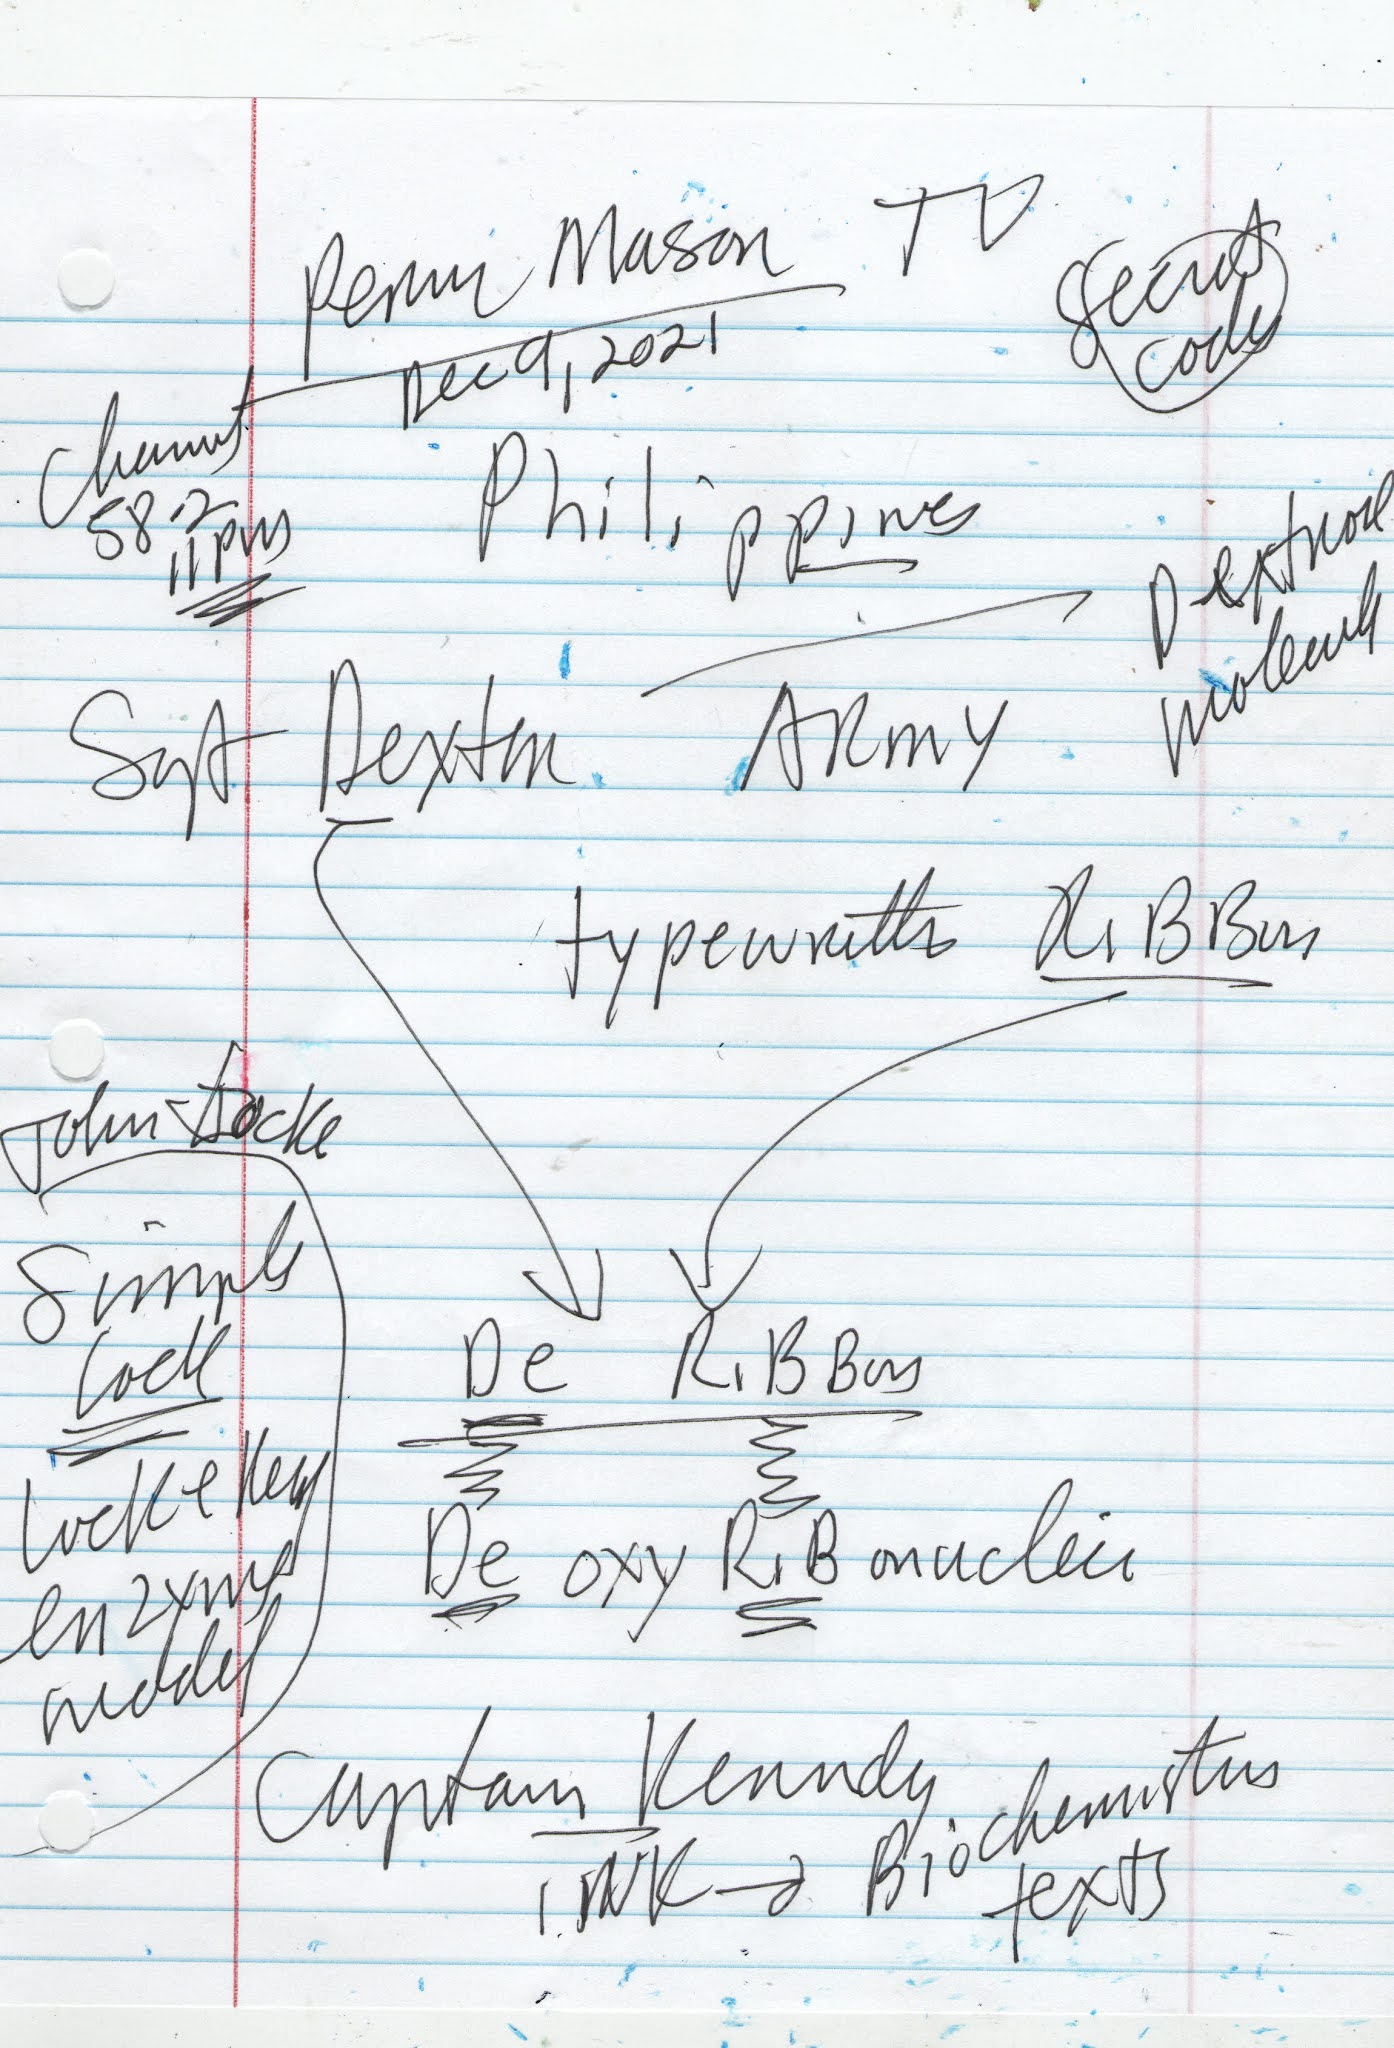 Perry Mason TV
Secret
code
Dec 9, 2021
Channel
58.2
11pm
Philippines
Dextrose
molecule
Sgt Dexter Army
typewriter RiBBon
John Locke
Simple
lock
lock & key
enzyme
model
De RiBBon
De oxy RiBonucleic
Captain Kennedy
iNK → Biochemistry
texts